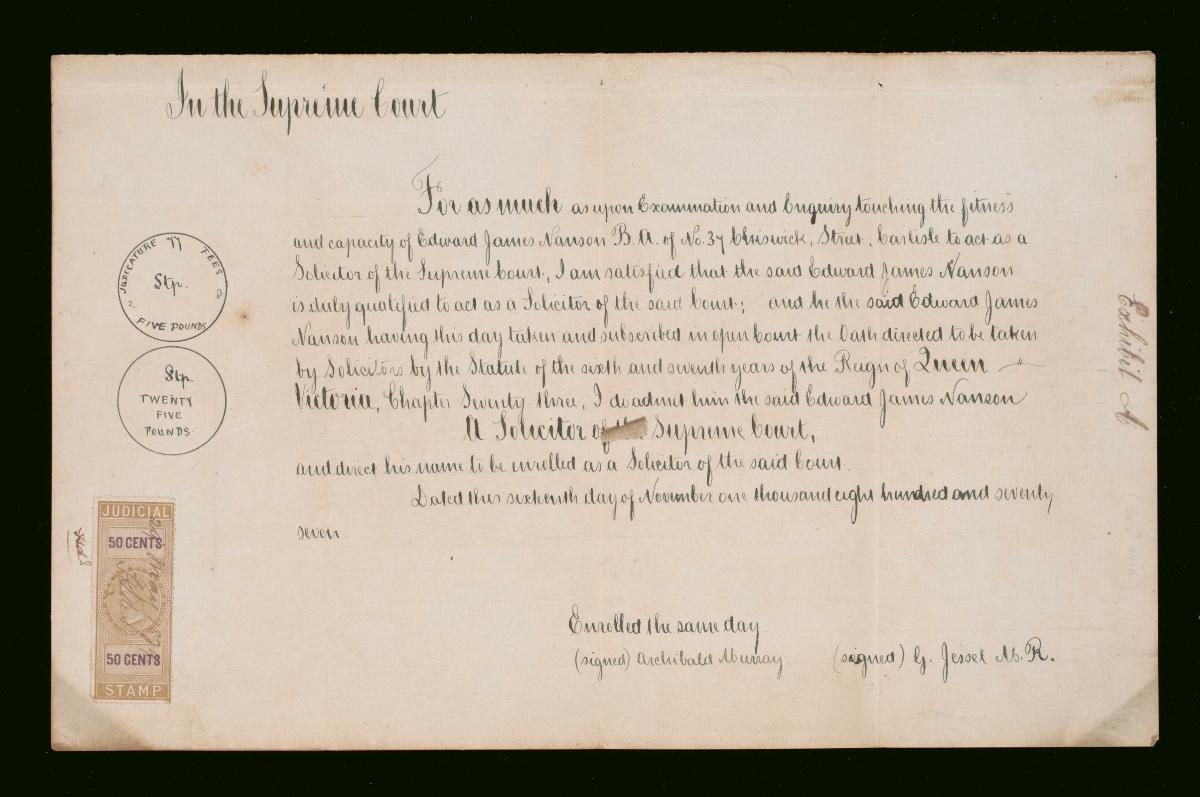 In the Supreme Court
For as much as upon Examination and Enquiry touching the fitness
and capacity of Edward James Nanson B.A. of No. 37 Chiswick, Street, Carlisle to act as a
Solicitor of the Supreme Court, I am satisfied that the said Edward James Nanson
is duly qualified to act as a Solicitor of the said Court; and he the said Edward James
Nanson having this day taken and subscribed in open Court the Oath directed to be taken
by Solicitors by the Statute of the sixth and seventh years of the Reign of Queen
Victoria, Chapter Seventy three, I do admit him the said Edward James Nanson
A Solicitor of the Supreme Court,
and direct his name to be enrolled as a Solicitor of the said Court.
Dated this sixteenth day of November one thousand eight hundred and seventy
seven.
Enrolled the same day
(signed) Archibald Murray. (signed) G. Jessel M.R.
JUDICATURE 77 FEES
Stp.
FIVE POUNDS
Stp.
TWENTY
FIVE
POUNDS.
JUDICIAL
50 CENTS
50 CENTS
STAMP
Exhibit A